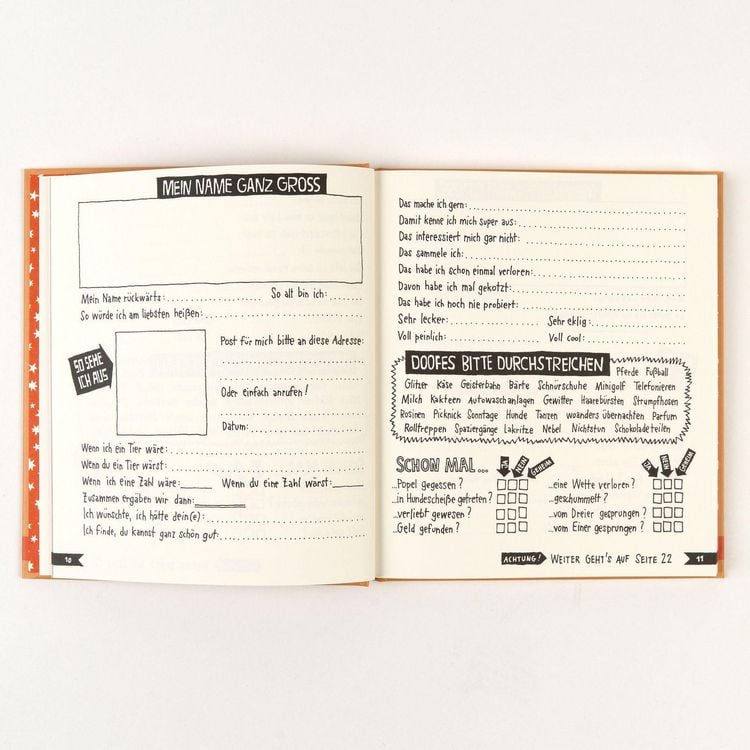 MEIN NAME GANZ GROSS
Mein Name rückwärts:
So alt bin ich:
So würde ich am liebsten heißen:
SO SEHE
ICH AUS
Post für mich bitte an diese Adresse:
Oder einfach anrufen!
Datum:
Wenn ich ein Tier wäre:
Wenn du ein Tier wärst:
Wenn ich eine Zahl wäre:
Wenn du eine Zahl wärst:
Zusammen ergäben wir dann:
Ich wünschte, ich hätte dein(e):
Ich finde, du kannst ganz schön gut:
10
Das mache ich gern:
Damit kenne ich mich super aus:
Das interessiert mich gar nicht:
Das sammele ich:
Das habe ich schon einmal verloren:
Davon habe ich mal gekotzt:
Das habe ich noch nie probiert:
Sehr lecker:
Sehr eklig:
Voll peinlich:
Voll cool:
DOOFES BITTE DURCHSTREICHEN
Pferde Fußball
Glitzer Käse Geisterbahn Bärte Schnürschuhe Minigolf Telefonieren
Milch Kakteen Autowaschanlagen Gewitter Haarebürsten Strumpfhosen
Rosinen Picknick Sonntage Hunde Tanzen woanders übernachten Parfum
Rolltreppen Spaziergänge Lakritze Nebel Nichtstun Schokoladeteilen
SCHON MAL...
JA
NEIN
GEHEIM
JA
NEIN
GEHEIM
...Popel gegessen?
...in Hundescheiße getreten?
...verliebt gewesen?
...Geld gefunden?
...eine Wette verloren?
...geschummelt?
...vom Dreier gesprungen?
...vom Einer gesprungen?
ACHTUNG! WEITER GEHT'S AUF SEITE 22
11